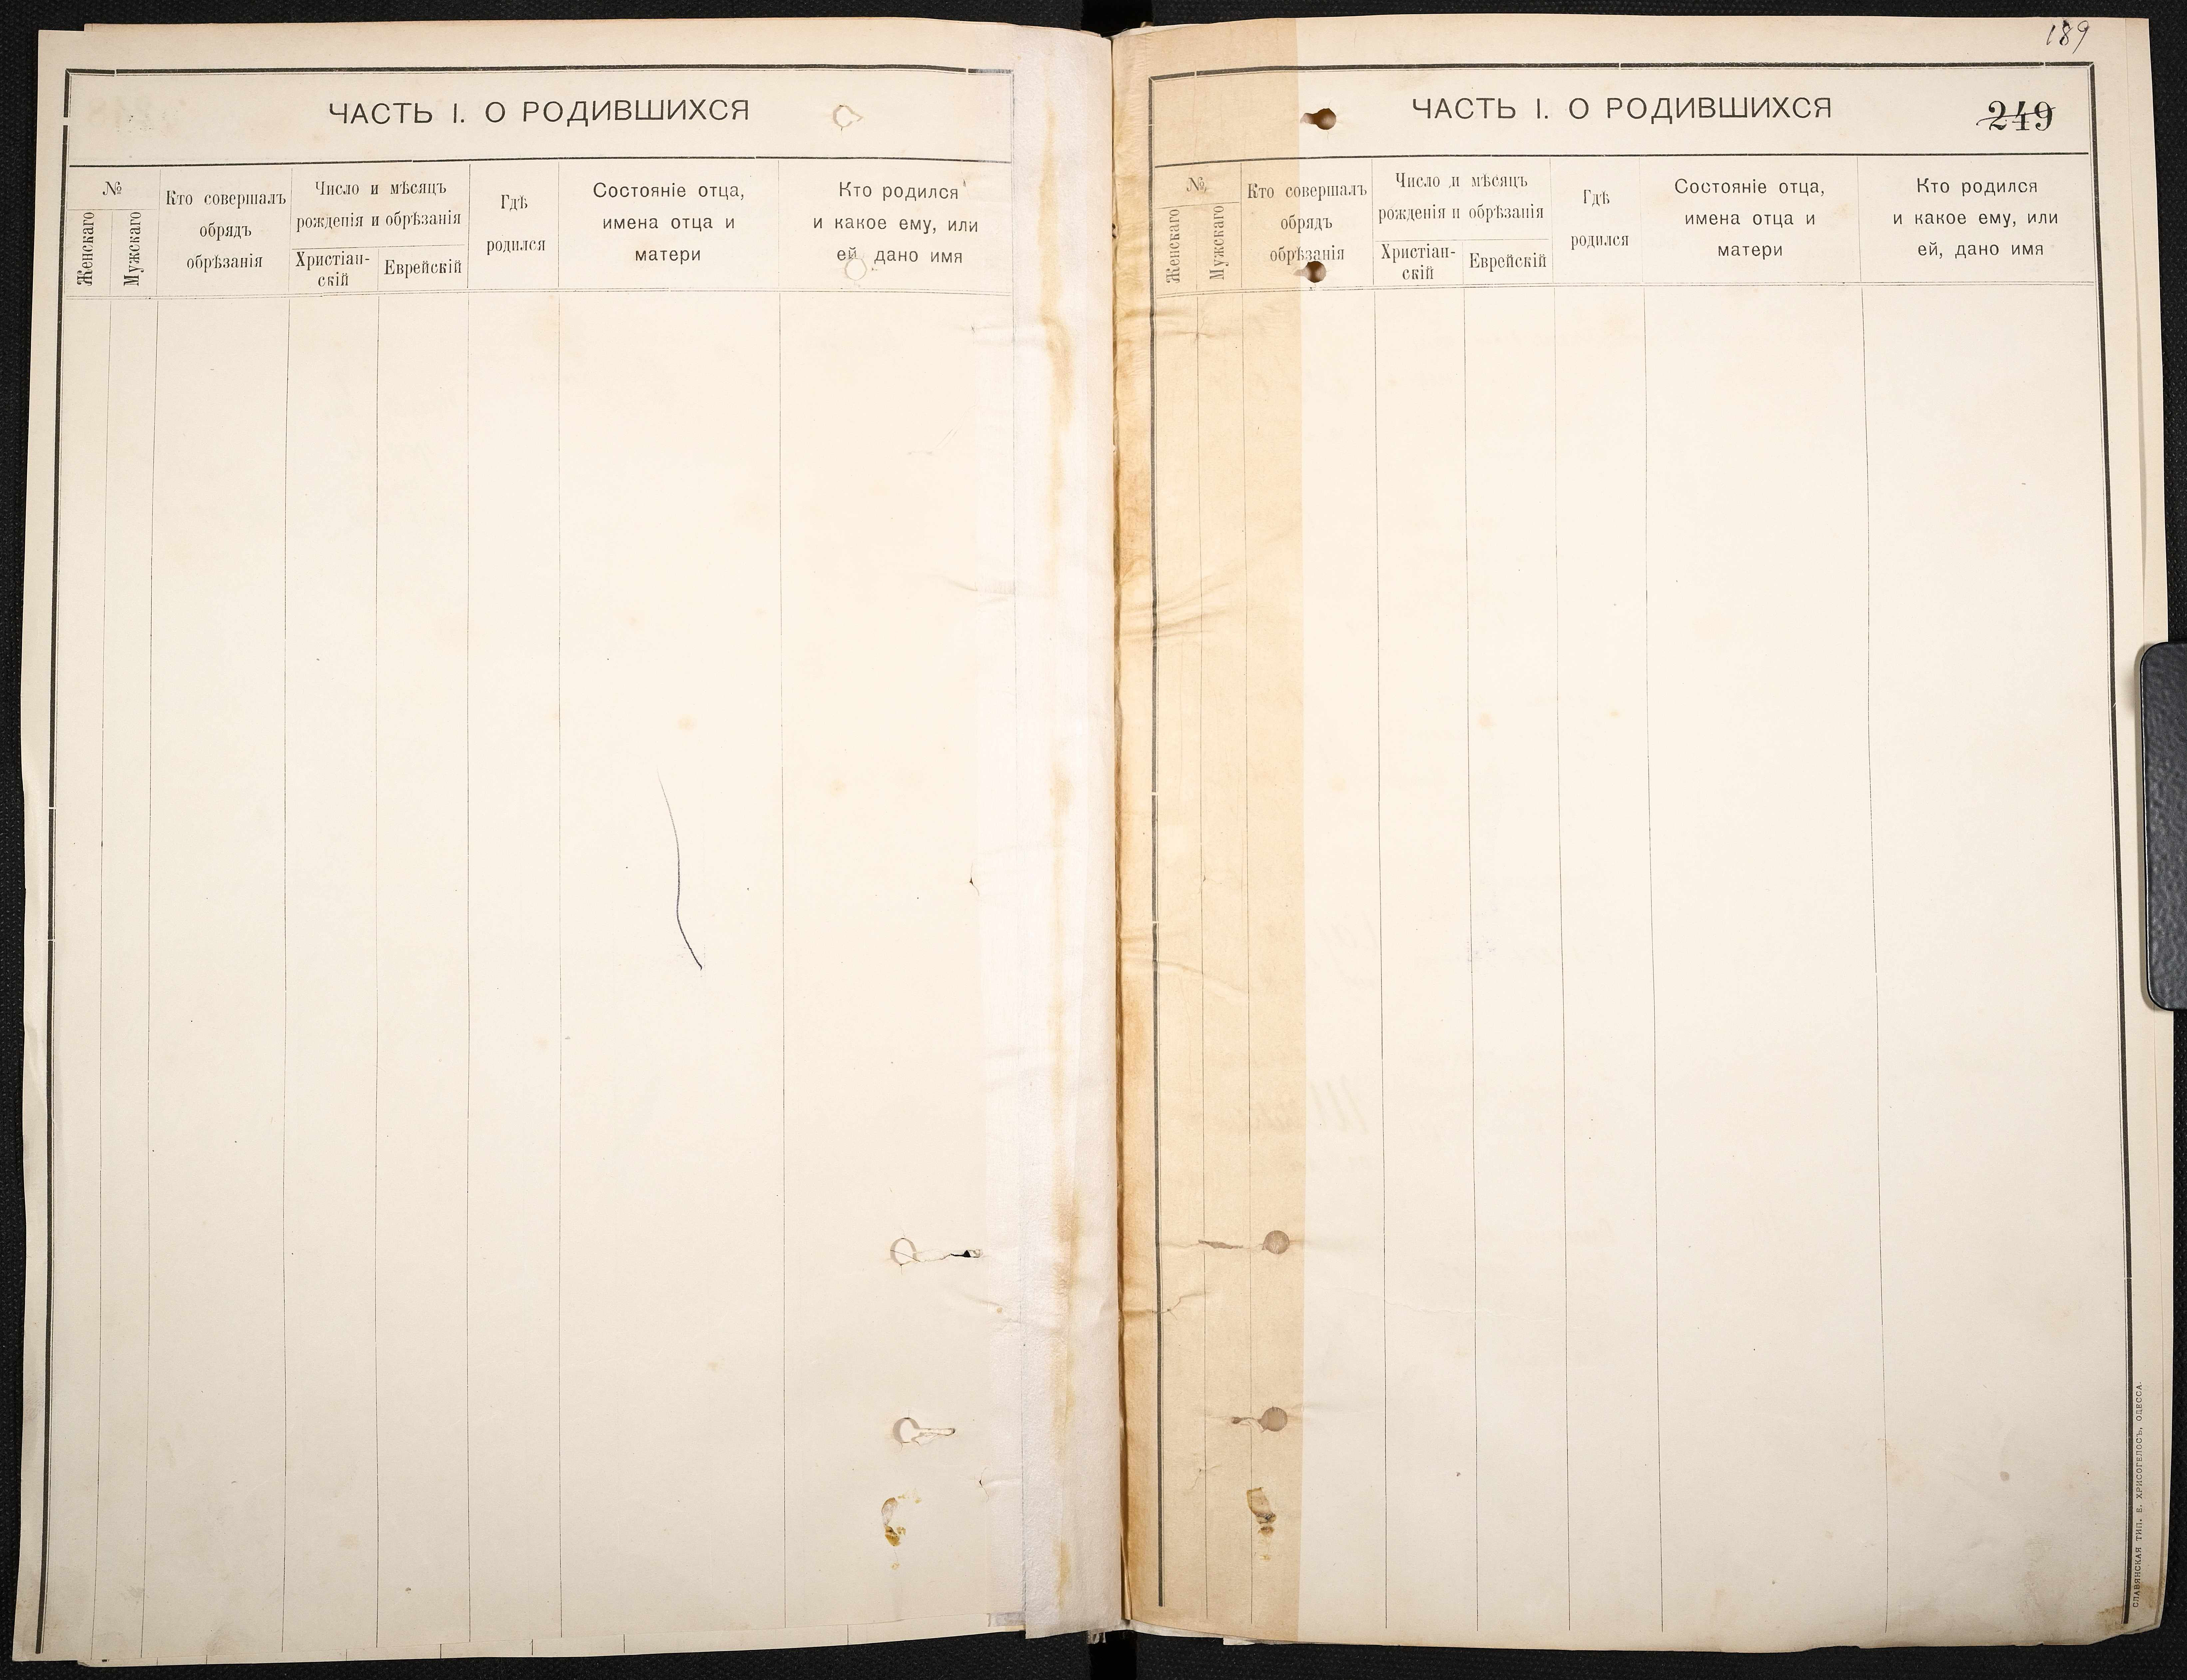 ЧАСТЬ I. О РОДИВШИХСЯ
№
Женскаго
Мужскаго
Кто совершалъ
обрядъ
обрѣзанія
Число и мѣсяцъ
рожденія и обрѣзанія
Христіан-
скій
Еврейскій
Гдѣ
родился
Состояніе отца,
имена отца и
матери
Кто родился
и какое ему, или
ей, дано имя
189
ЧАСТЬ I. О РОДИВШИХСЯ
249
№
Женскаго
Мужскаго
Кто совершалъ
обрядъ
обрѣзанія
Число и мѣсяцъ
рожденія и обрѣзанія
Христіан-
скій
Еврейскій
Гдѣ
родился
Состояніе отца,
имена отца и
матери
Кто родился
и какое ему, или
ей, дано имя
СЛАВЯНСКАЯ ТИП. Е. ХРИСОГЕЛОСЪ, ОДЕССА.